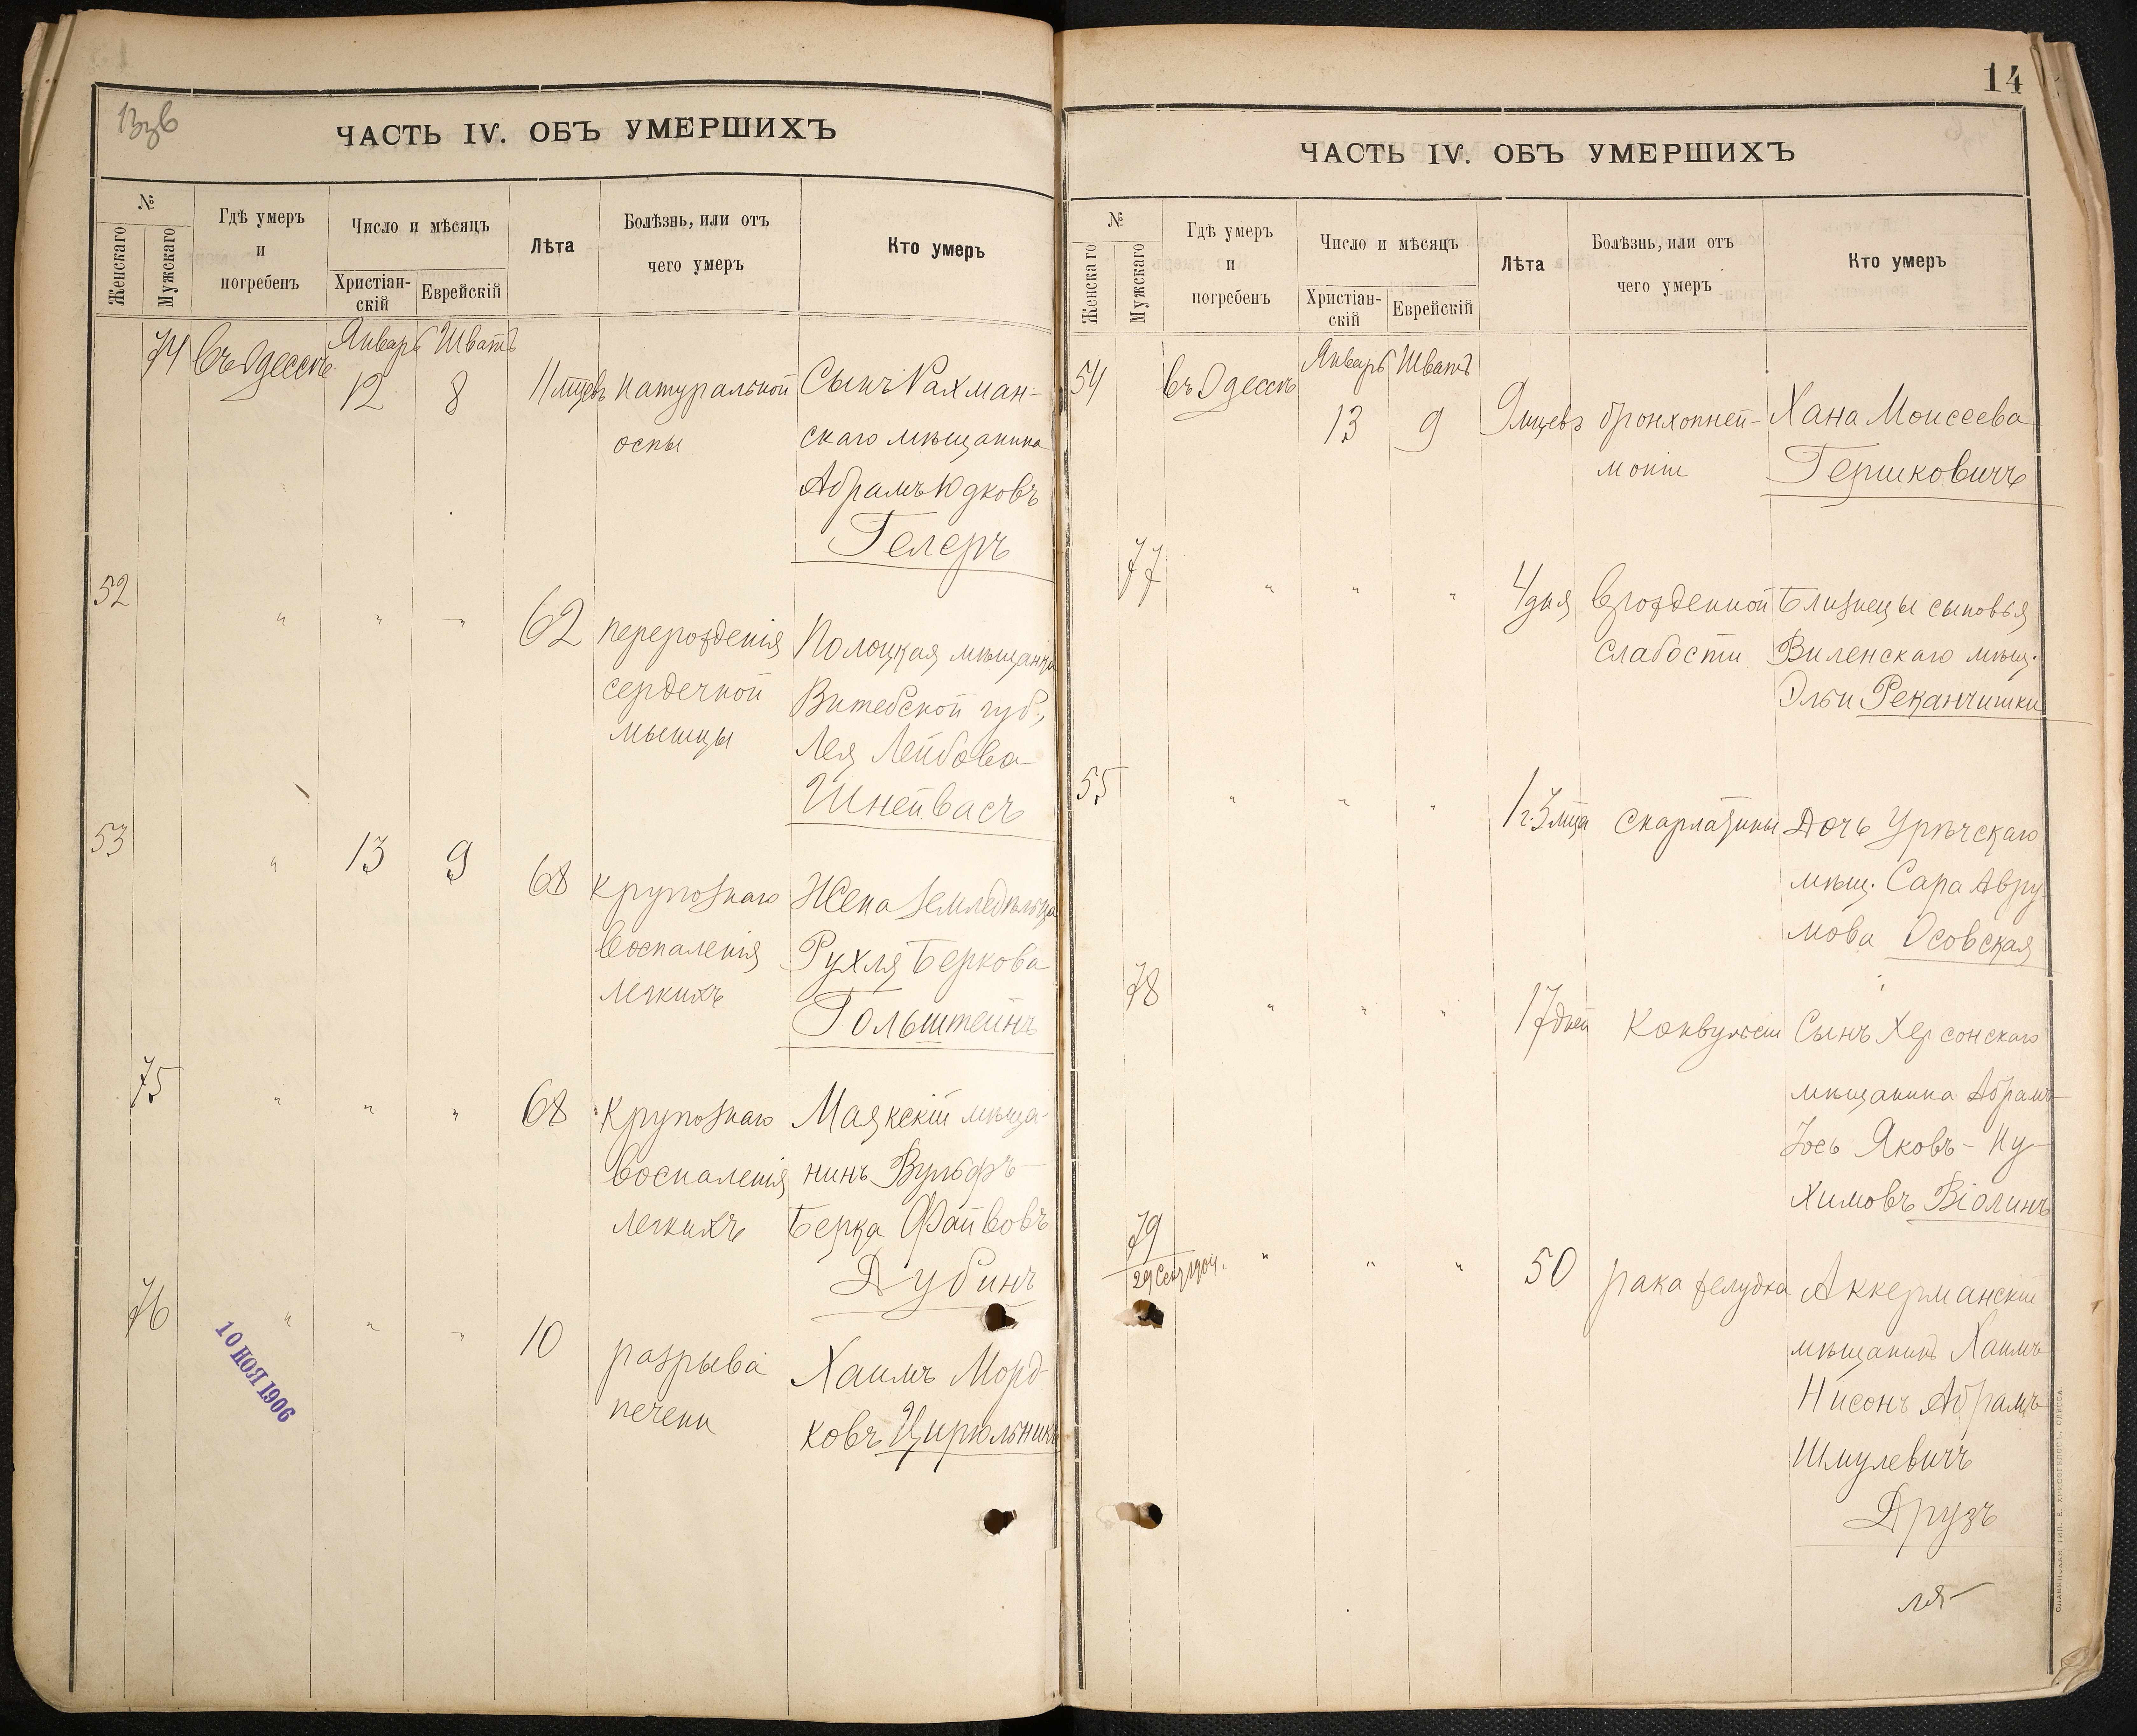 13зв
ЧАСТЬ IV. ОБЪ УМЕРШИХЪ
№
Женскаго
Мужскаго
Гдѣ умеръ
и
погребенъ
Число и мѣсяцъ
Христіан-
скій
Еврейскій
Лѣта
Болѣзнь, или отъ
чего умеръ
Кто умеръ
74 Въ Одессѣ Январь Шватъ
12 8 11 мцевъ натуральной Сынъ Рахман-
оспы скаго мѣщанина
Абрамъ Юдковъ
Гелеръ
52 " " " 62 перерожденія Полоцкая мѣщанка
сердечной Витебской губ.,
мышцы Лея Лейбова
Шнейвасъ
53 " 13 9 68 крупознаго Жена земледѣльца
воспаленія Рухля Беркова
легкихъ Гольштейнъ
75 " " " 68 крупознаго Маякскій мѣща-
воспаленія нинъ Вульфъ-
легкихъ Берка Файвовъ
Дубинъ
76 " " " 10 разрыва Хаимъ Морд-
печени ковъ Цирюльникъ
10 НОЯ 1906
14
ЧАСТЬ IV. ОБЪ УМЕРШИХЪ
№
Женскаго
Мужскаго
Гдѣ умеръ
и
погребенъ
Число и мѣсяцъ
Христіан-
скій
Еврейскій
Лѣта
Болѣзнь, или отъ
чего умеръ
Кто умеръ
54 Въ Одессѣ Январь Шватъ
13 9 9 мцевъ бронхопней- Хана Моисеева
моніи Гершковичъ
77 " " " 4 дня врожденной Близнецы сыновья
слабости Виленскаго мѣщ.
Эльи Реканчишки
55 " " " 1 г. 3 мца скарлатины Дочь Урѣчскаго
мѣщ. Сара Авру-
мова Осовская
78 " " " 17 дней Конвульсіи Сынъ Херсонскаго
мѣщанина Абрамъ-
Іось Яковъ-Ну-
химовъ Віолинъ
79 " " " 50 рака желудка Аккерманскій
29 Сен 1904.
мѣщанинъ Хаимъ
Нисонъ Абрамъ
Шмулевичъ
Друзъ
СЛАВЯНСКАЯ ТИП. Е. ХРИСОГЕЛОСЪ, ОДЕССА.